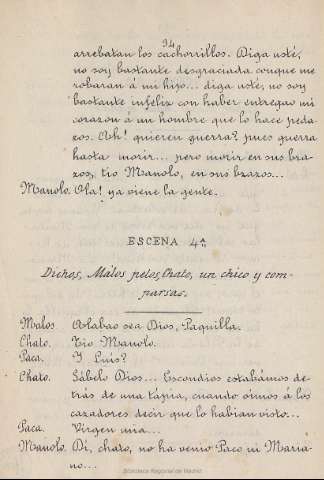 94
arrebatan los cachorrillos. Diga usté,
no soy bastante desgraciada conque me
robaran á mi hijo... diga usté, no soy
bastante infeliz con haber entregao mi
corazon á un hombre que lo hace peda-
zos. Ah! quieren guerra? pues guerra
hasta morir... pero morir en sus bra-
zos, tio Manolo, en sus brazos...
Manolo. Ola! ya viene la gente.
ESCENA 4ª
Dichos, Malos pelos, Chato, un chico y com-
parsas.
Malos. Alabao sea Dios, Paquilla.
Chato. Tio Manolo.
Paca. Y Luis?
Chato. Sábelo Dios... Escondios estabámos de-
trás de una tápia, cuando oimos á los
cazadores decir que lo habian visto...
Paca. Virgen mia...
Manolo. Di, chato, no ha venio Paco ni Maria-
no...
Biblioteca Regional de Madrid